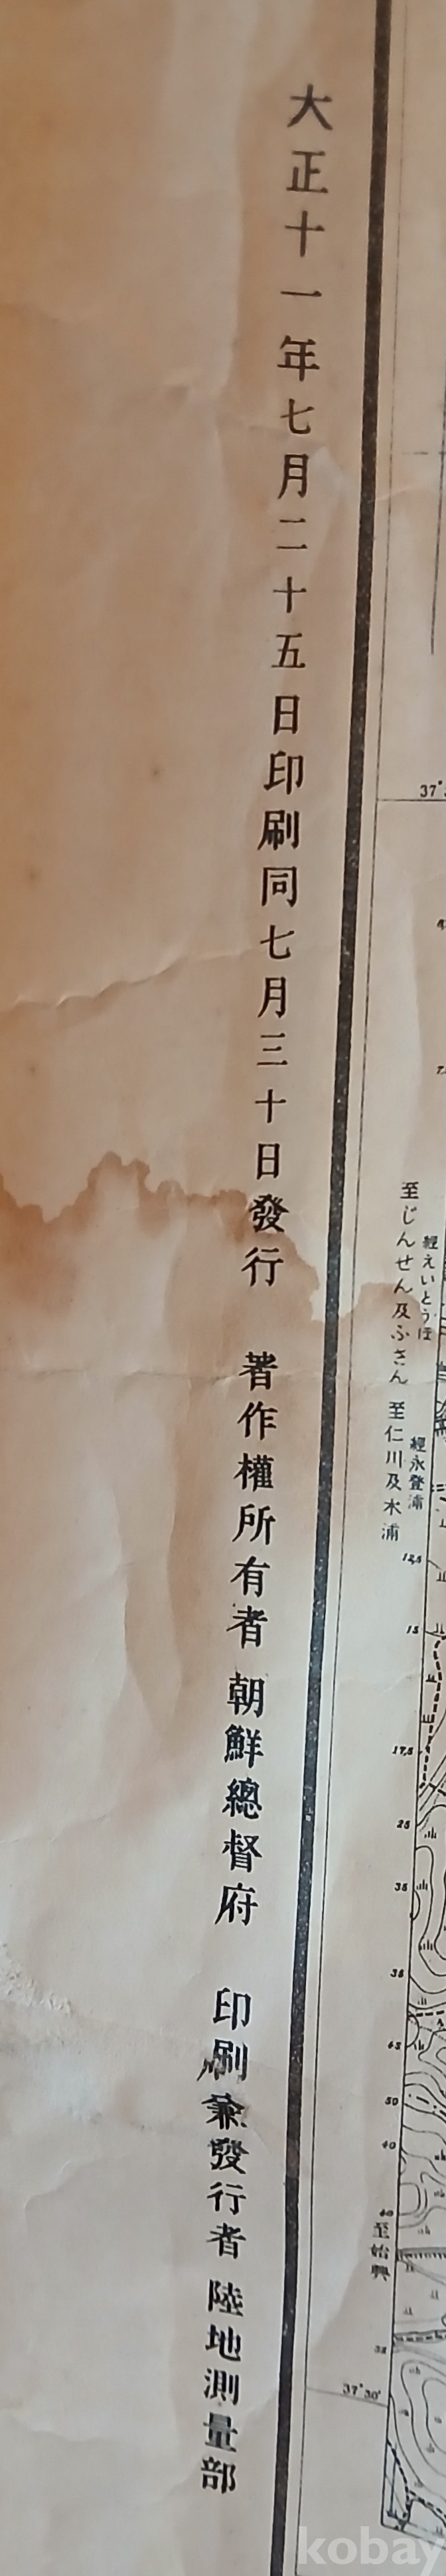 大正十一年七月二十五日印刷同七月三十日發行 著作權所有者 朝鮮總督府 印刷兼發行者 陸地測量部
37°
至じんせん及ふさん 至仁川及木浦
經えいとうほ 經永登浦
7.
12,5
15
17,5
25
35
36
45
50
40
40
至始興
32
37°30'
kobay